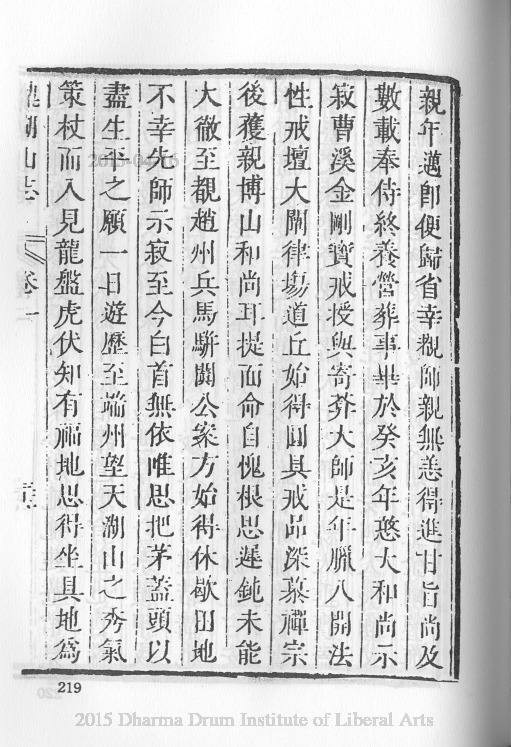 親年邁卽便歸省幸親師親無恙得進甘旨尚及
數載奉侍終養營葬事畢於癸亥年憨大和尚示
寂曹溪金剛寶戒授與寄莽大師是年臘八開法
性戒壇大闡律場道丘始得圓具戒品深慕禪宗
後獲親博山和尚耳提面命自愧根思遲鈍未能
大徹至覩趙州兵馬騈闐公案方始得休歇田地
不幸先師示寂至今白首無依唯思把茅蓋頭以
盡生平之願一日遊歷至端州望天湖山之秀氣
策杖而入見龍盤虎伏知有福地思得坐具地爲
湖山志
卷一
219
2015 Dharma Drum Institute of Liberal Arts